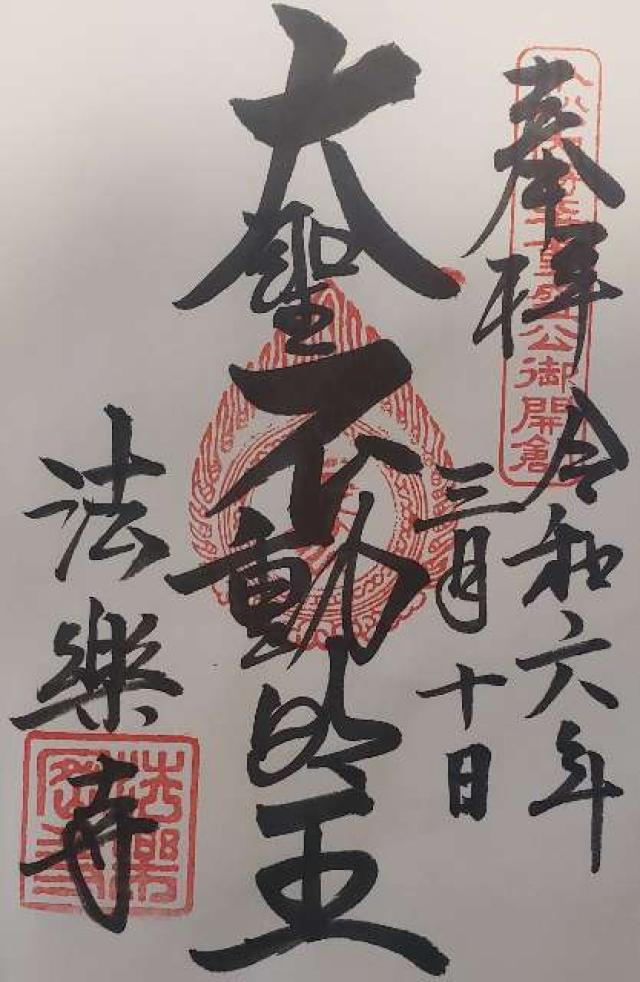 奉拝
令和六年
三月十日
大聖不動明王
法樂寺
公御開創
法樂寺